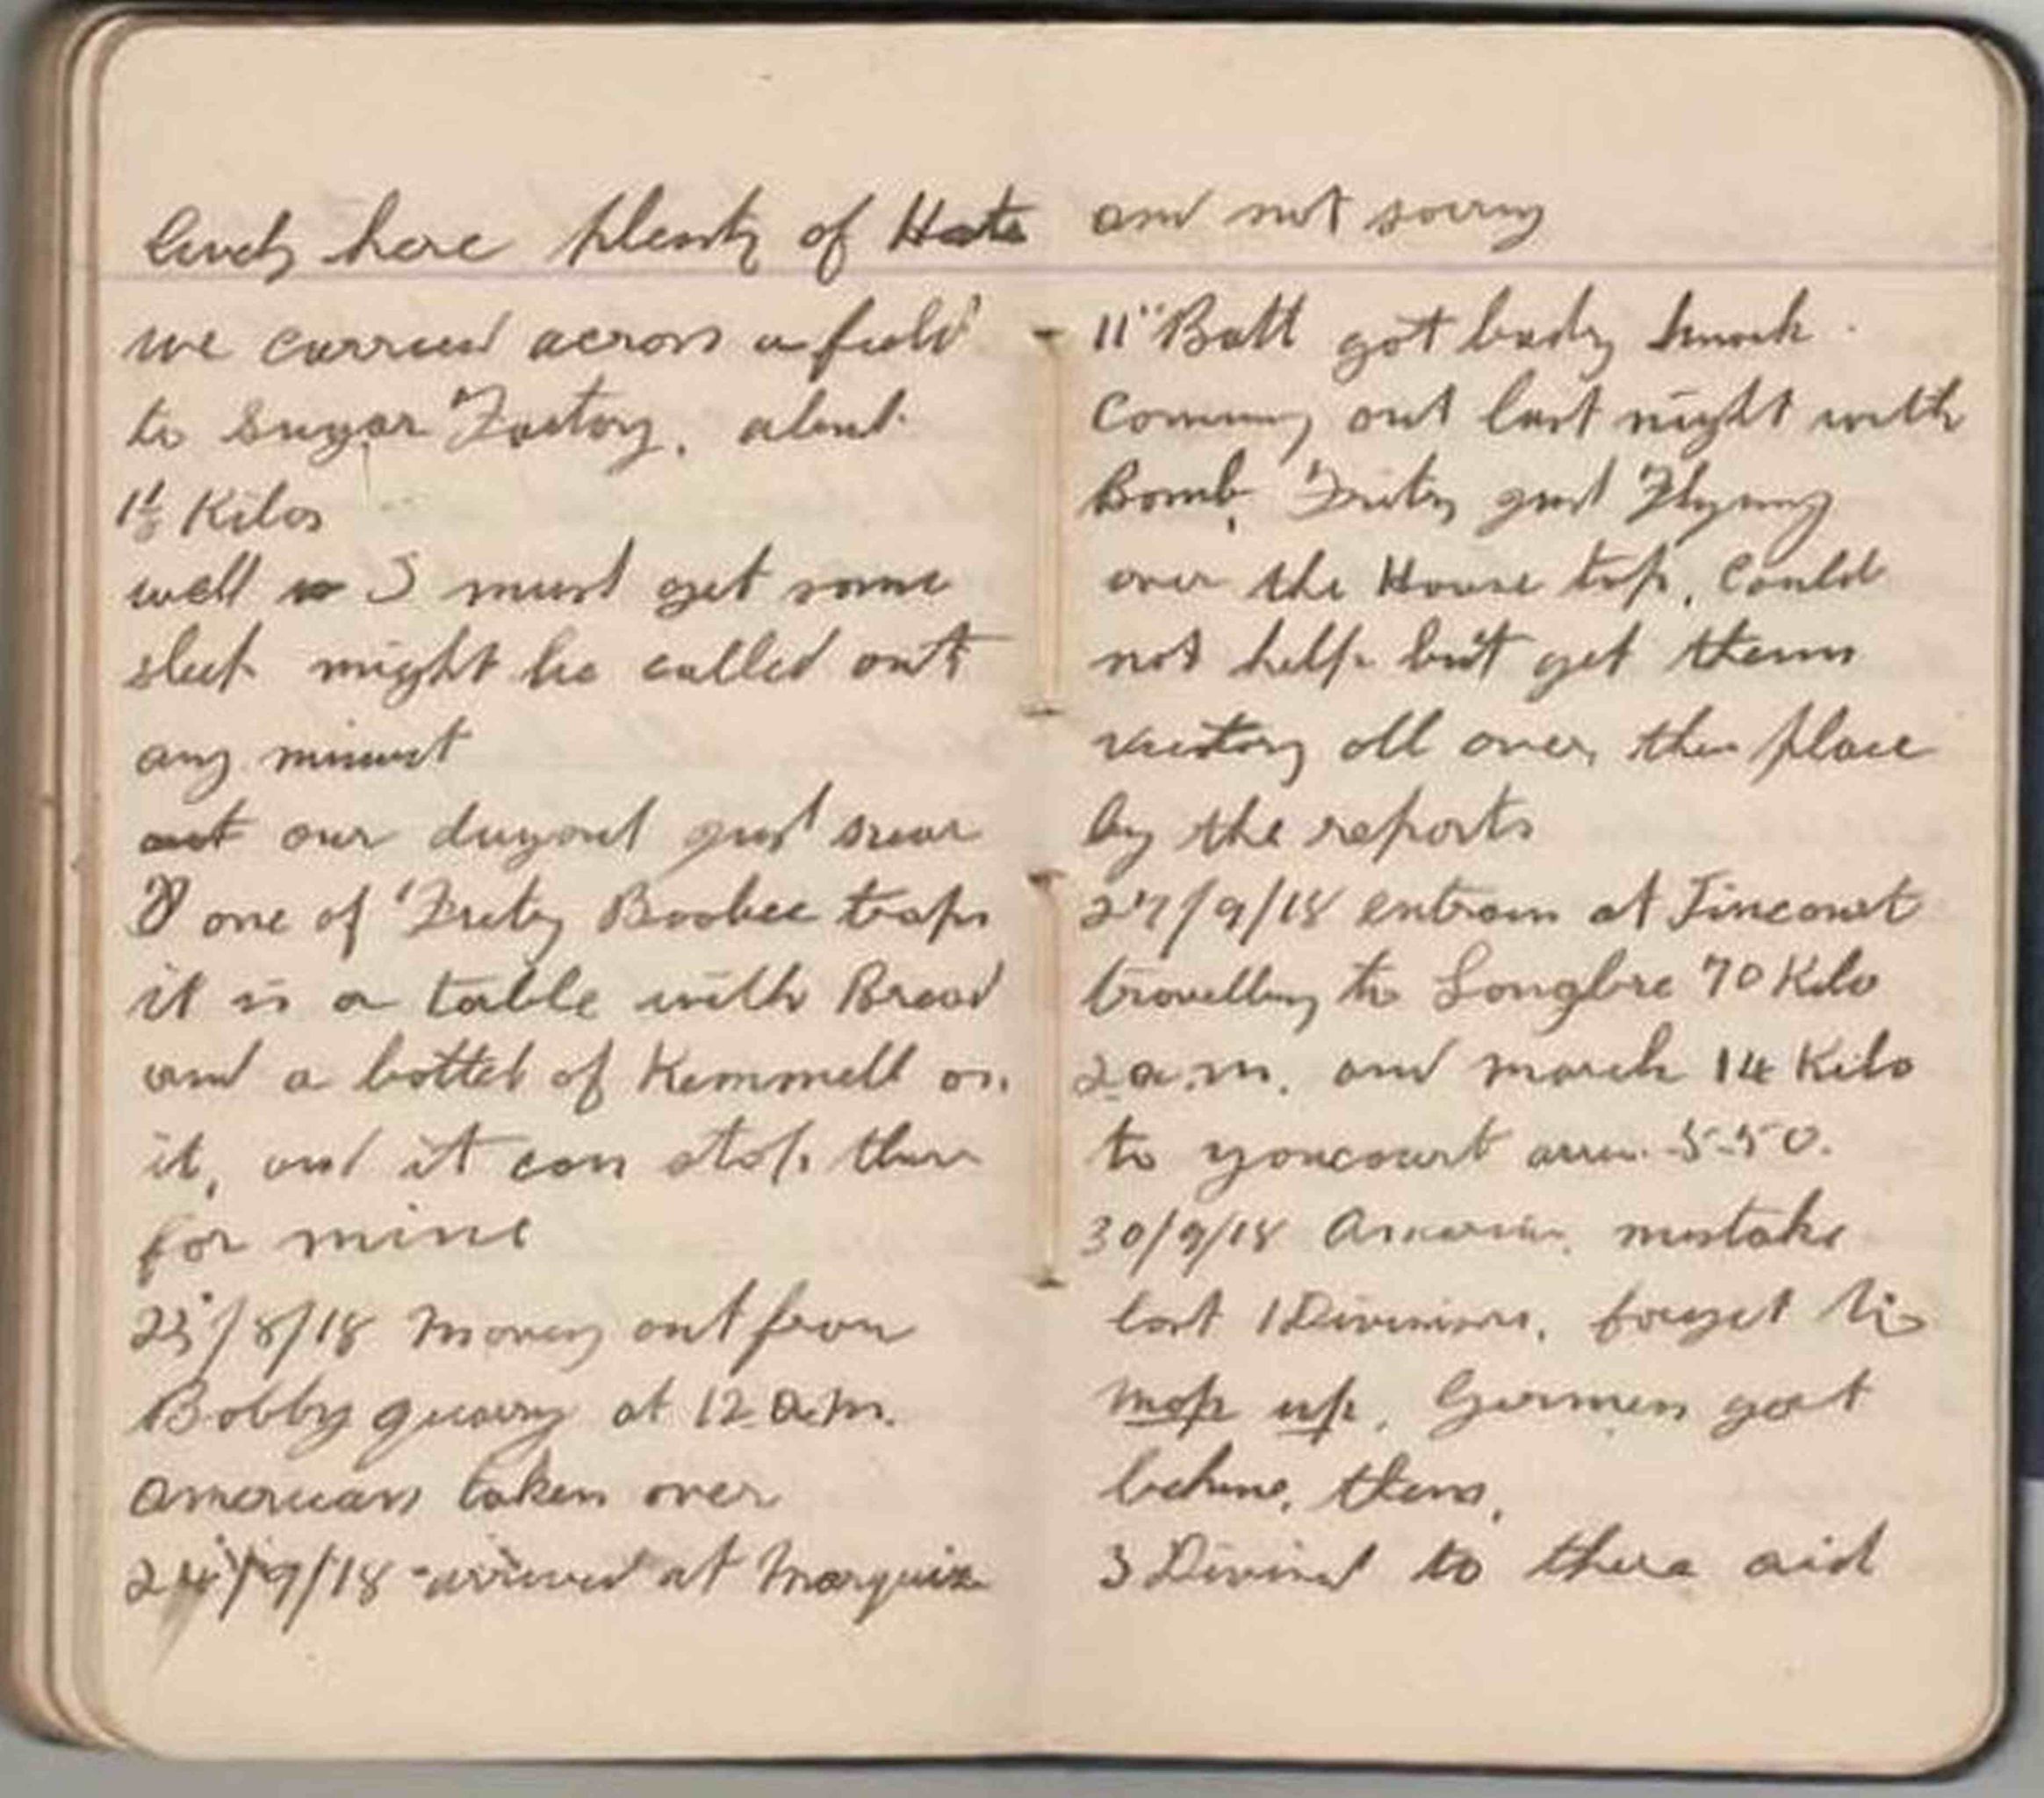 lively here plenty of Hate
we carried across a field
to Sugar Factory, about
1½ Kilos
well I must get some
sleep might be called out
any minuet
our dugout just near
one of Fritz Boobee traps
it is a table with Bread
and a bottel of Kemmell on
it, and it can stop there
for mine
23/8/18 Moving out from
Bobby quarry at 12 a.m.
americans taken over
24/9/18 arrived at Marquix
and not sorry
11" Batt got badly knock
Coming out last night with
Bomb, Fritz just Flying
over the House top, Could
not help but get them
victory all over the place
by the reports
27/9/18 entrain at Tincourt
travelling to Longbre 70 Kilo
2 a.m. and march 14 Kilo
to yoncourt 5-50.
30/9/18 mistake
lost 1 Divisions, forget to
mop up, Germen got
behind them,
3 Divisnd to there aid